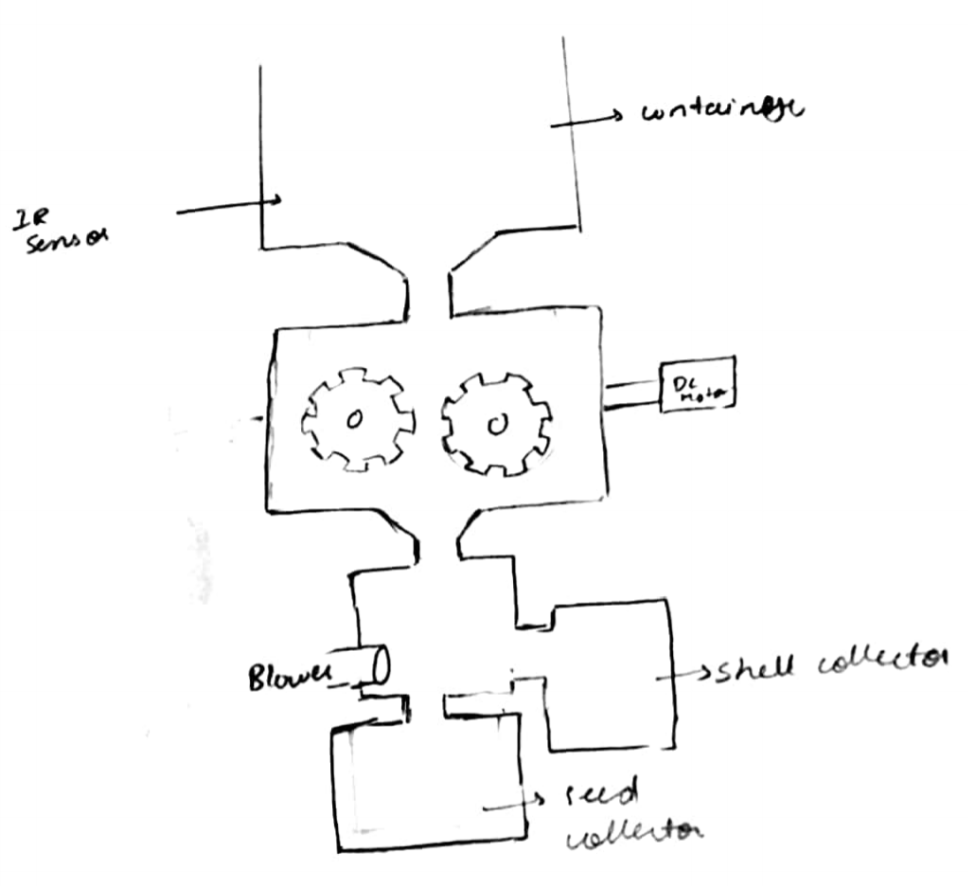 container
IR
Sensor
DC
Motor
Blower
shell collector
seed
collector